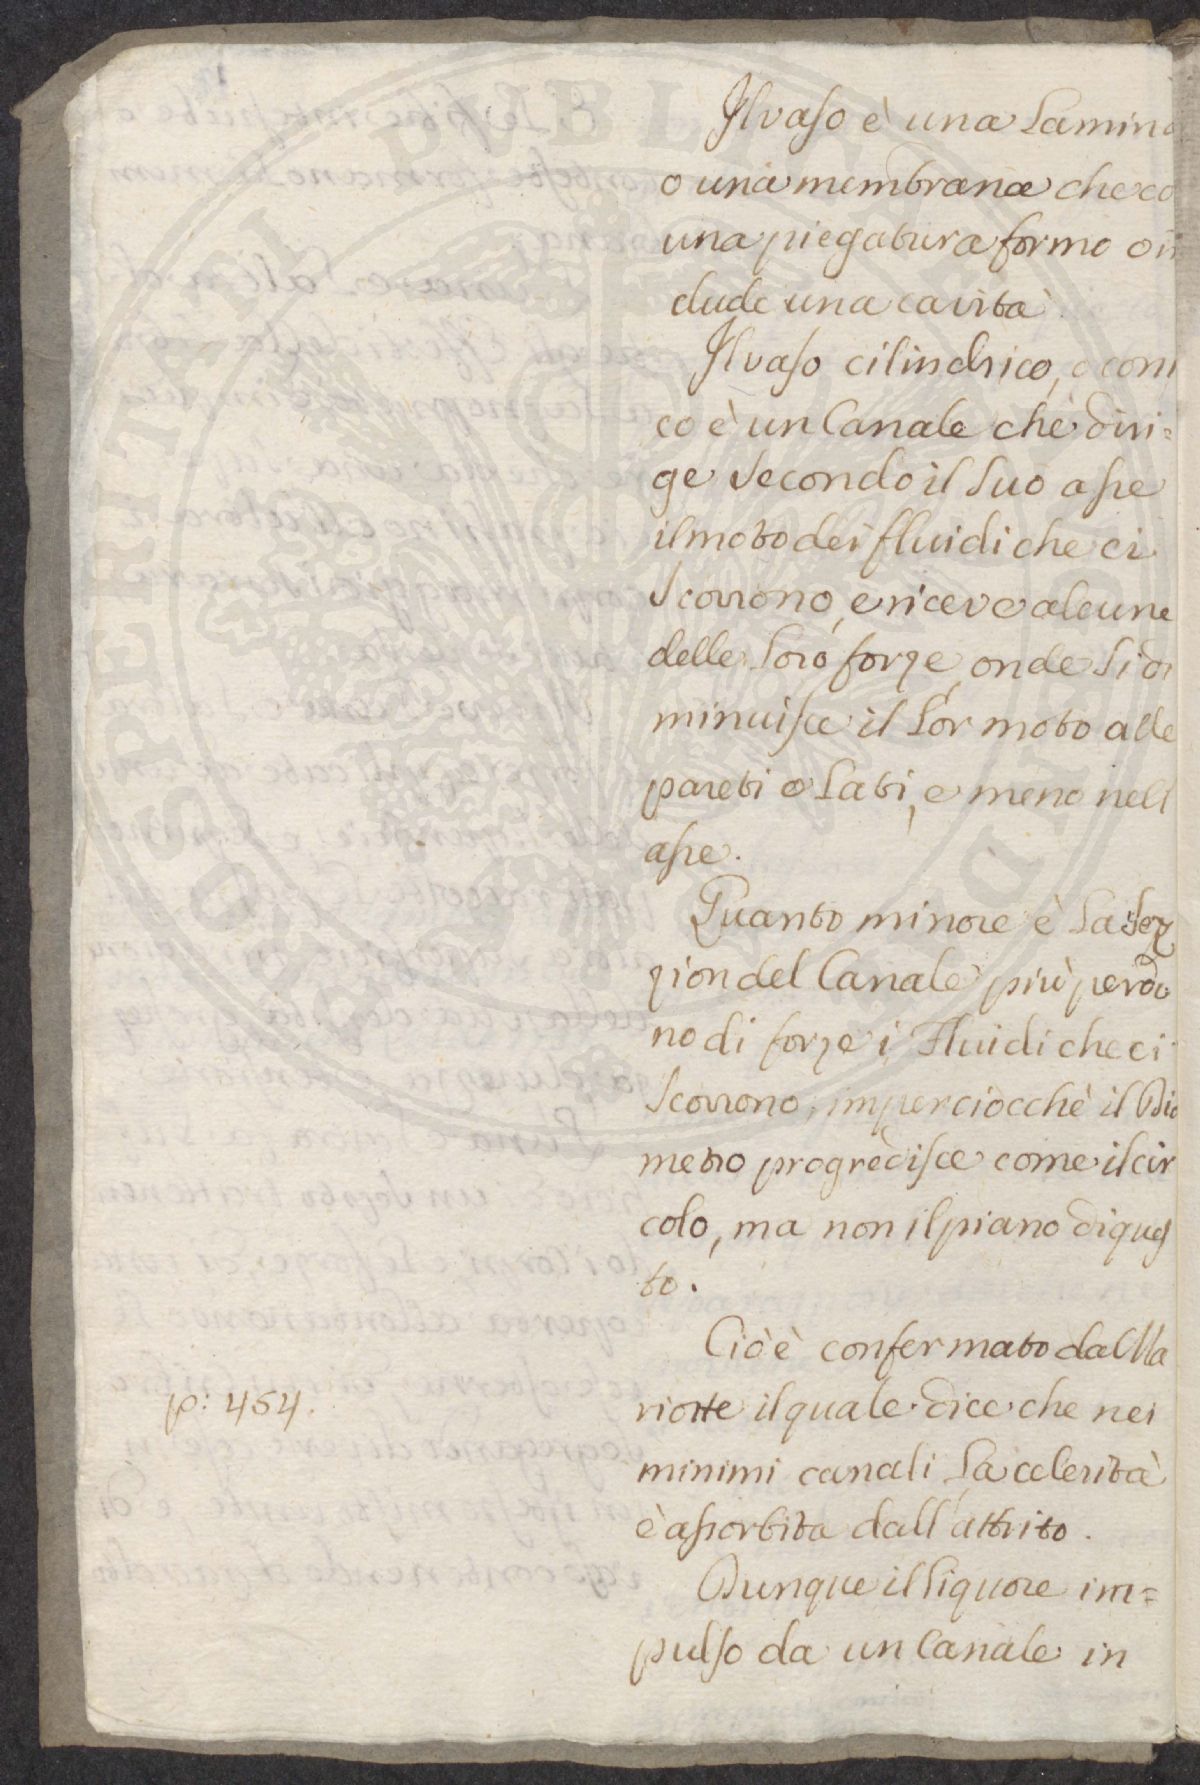 Il vaso è una Lamina
o una membrana che co
una piegatura forma o in
clude una cavità.
Il vaso cilindrico, o coni
co è un Canale che diri=
ge secondo il suo asse
il moto dei fluidi che ci
scorrono, e riceve alcune
delle loro forze, onde si di
minuisce il lor moto alle
pareti o lati, e meno nell
asse.
Quanto minore è la sez
zion del Canale più perdo
no di forze i Fluidi che ci
scorrono, imperciocchè il Dia
metro progredisce come il cir
colo, ma non il piano di ques
to.
Ciò è confermato dal Ma
riotte il quale dice che nei
p: 454.
minimi canali la celerità
è assorbita dall'attrito.
Dunque il liquore im=
pulso da un Canale in